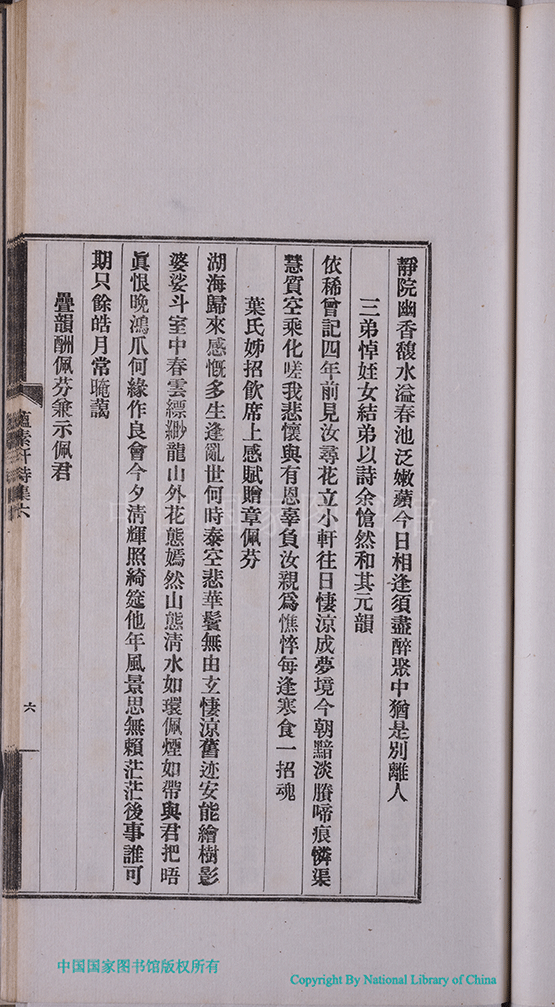 靜院幽香馥水溢春池泛嫩蘋今日相逢須盡醉聚中猶是別離人
三弟悼姪女結弟以詩余愴然和其元韻
依稀曾記四年前見汝尋花立小軒往日悽涼成夢境今朝黯淡賸啼痕憐渠
慧質空乘化嗟我悲懷與有恩辜負汝親爲憔悴每逢寒食一招魂
葉氏姊招飲席上感賦贈章佩芬
湖海歸來感慨多生逢亂世何時泰空悲華鬢無由玄悽涼舊迹安能繪樹影
婆娑斗室中春雲縹緲龍山外花態嫣然山態清水如環佩煙如帶與君把晤
眞恨晚鴻爪何緣作良會今夕清輝照綺筵他年風景思無賴茫茫後事誰可
期只餘皓月常晻藹
疊韻酬佩芬兼示佩君
素軒詩集六
六
中国国家图书馆版权所有
Copyright By National Library of China